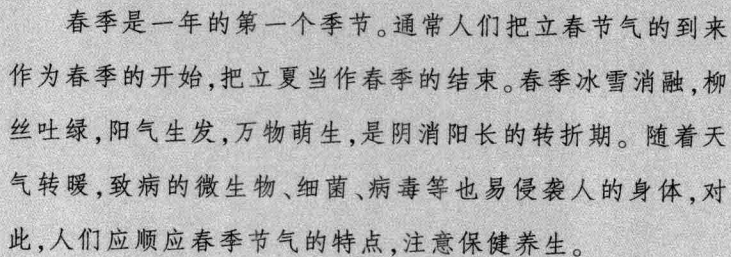 春季是一年的第一个季节。通常人们把立春节气的到来
作为春季的开始,把立夏当作春季的结束。春季冰雪消融,柳
丝吐绿,阳气生发,万物萌生,是阴消阳长的转折期。随着天
气转暖,致病的微生物、细菌、病毒等也易侵袭人的身体,对
此,人们应顺应春季节气的特点,注意保健养生。